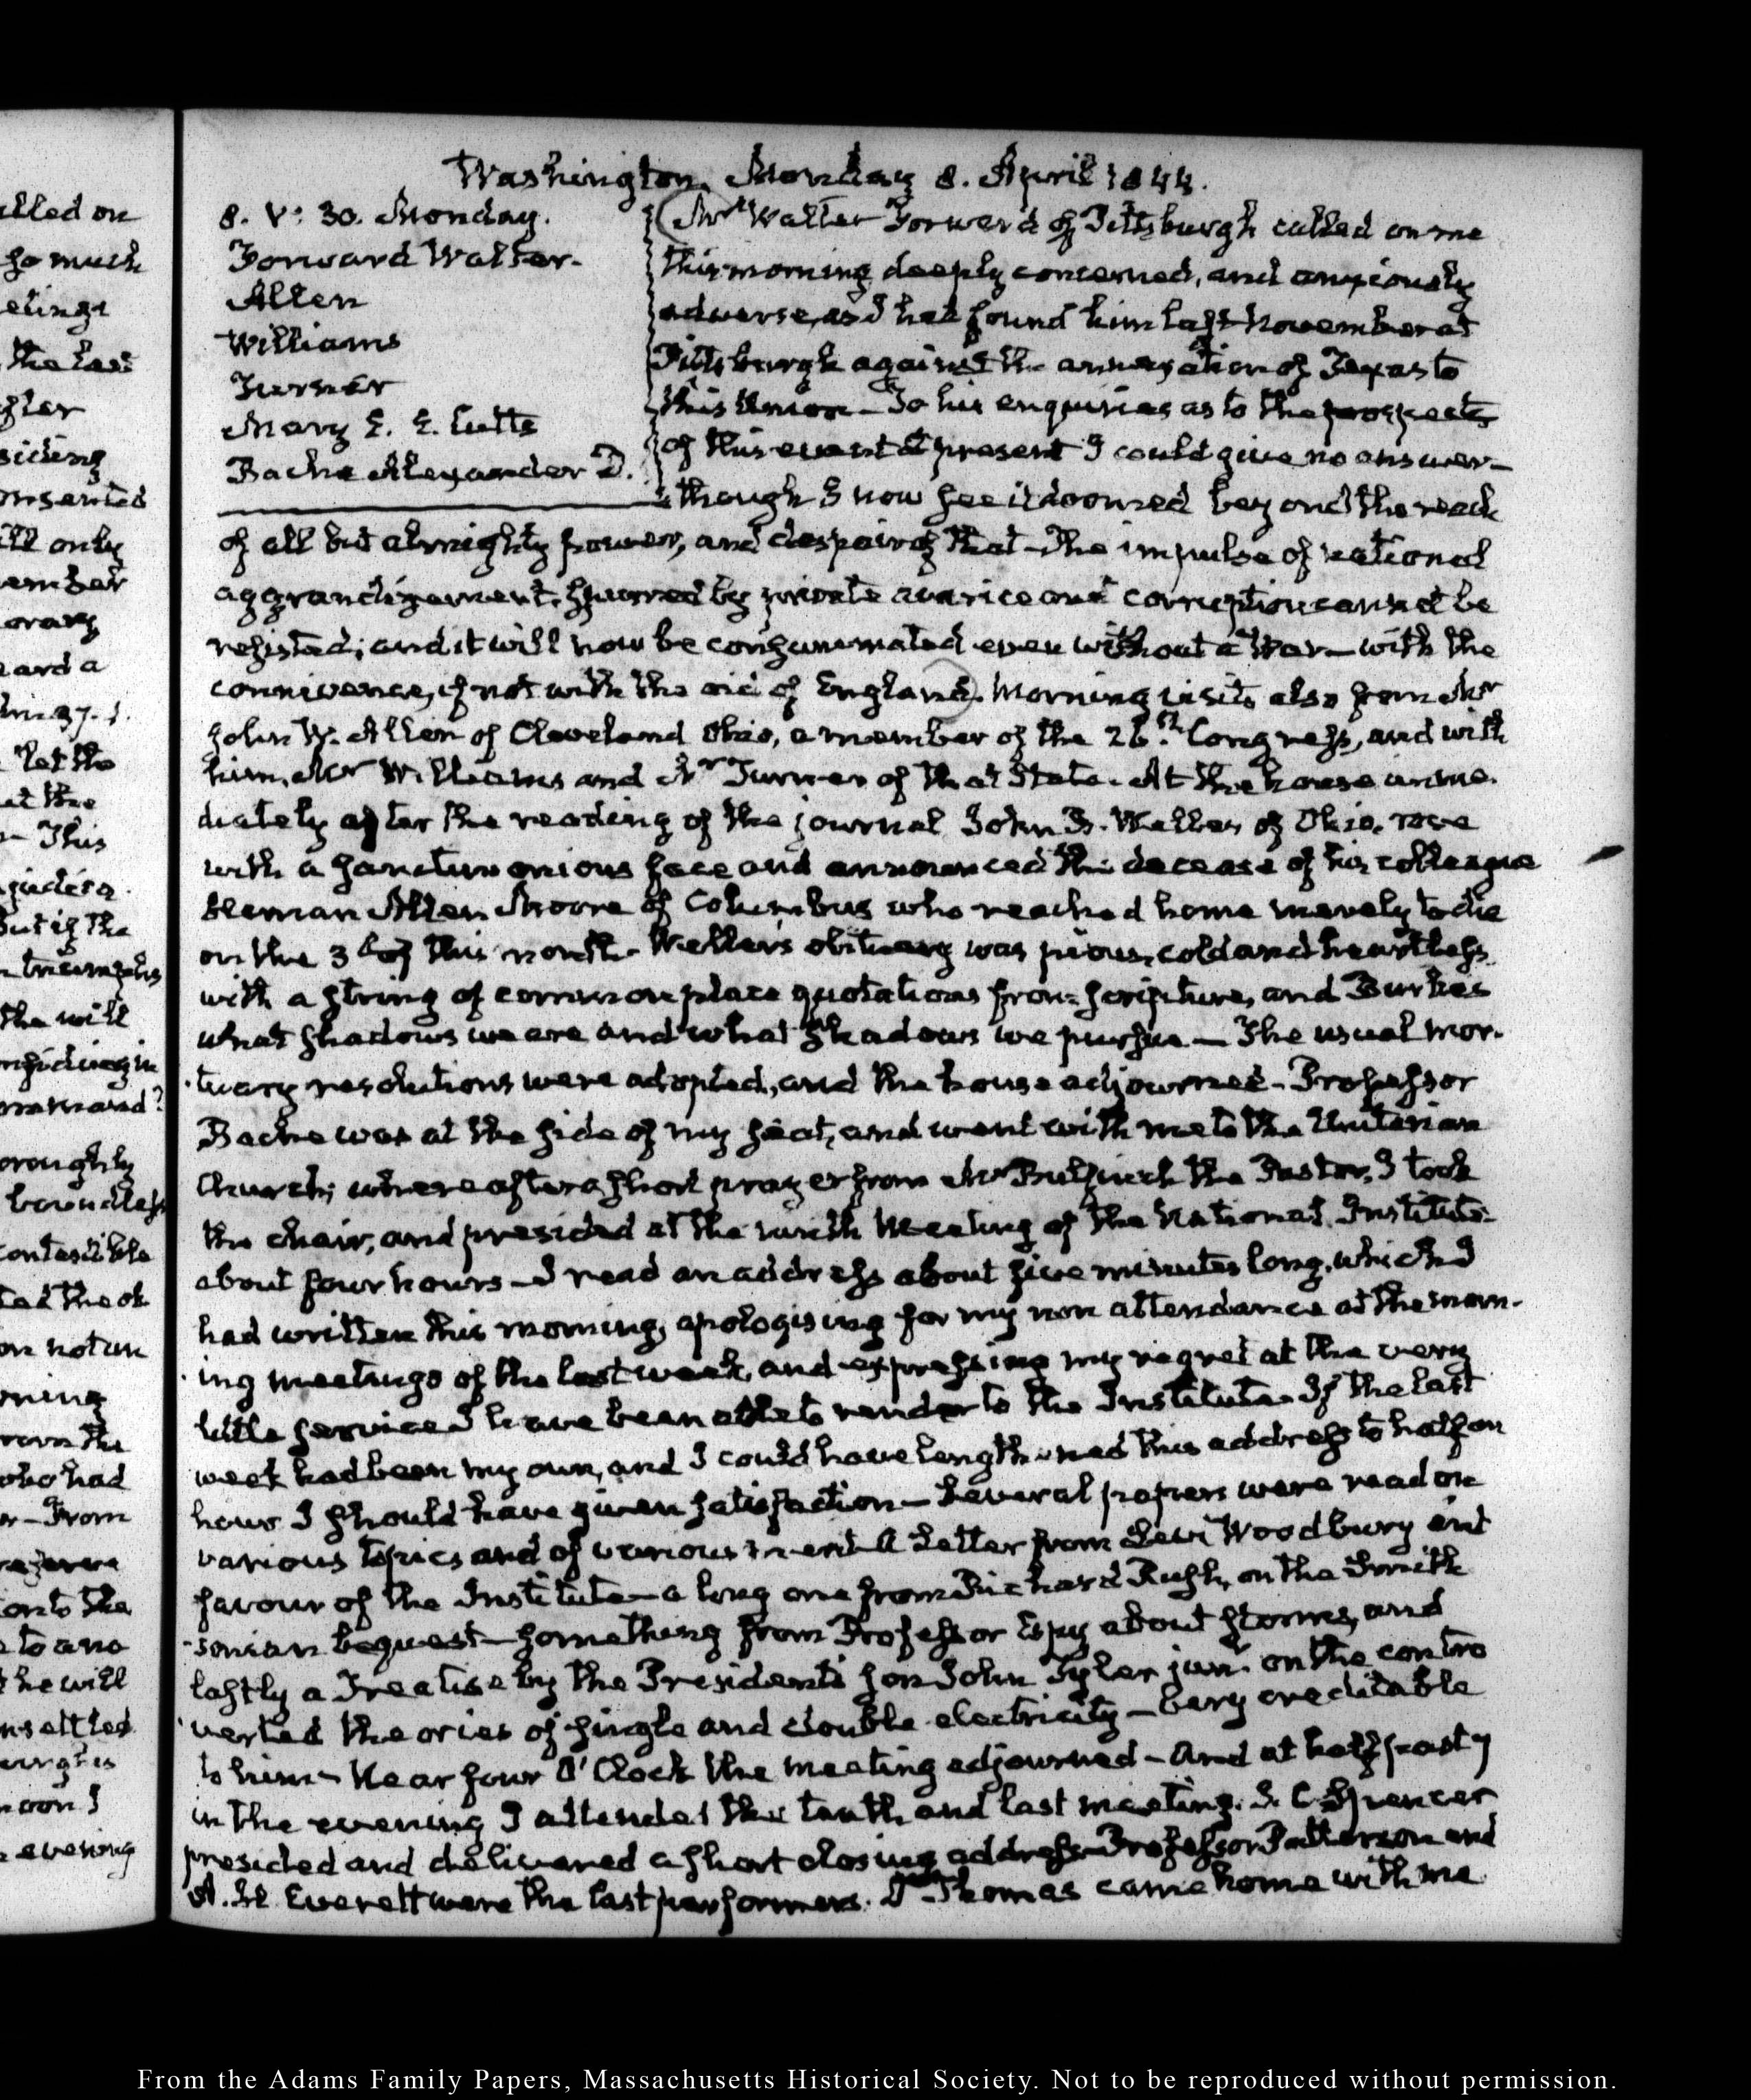 alled on
so much
elings
the last
ster
siding
onsented
ill only
ember
orary
and a
let the
at the
- This
But if the
triumphs
the will
mand?
oroughly
boundless
contestible
ted the ob
on not un
rning
who had
r - From
on to the
to ano
he will
nsettled
noon I
evening
Washington, Monday 8. April 1844.
8. V: 30. Monday.
Forward Walter.
Allen
Williams
Turner
Mary E. E. Cutts
Bache Alexander D.
Mr Walter Forward of Pittsburgh called on me
this morning deeply concerned, and anxiously
adverse, as I had found him last November at
Pittsburgh against the annexation of Texas to
this Union - To his enquiries as to the prospects
of this event at present I could give no answer -
though I now see it doomed beyond the reach
of all but almighty power, and despair of that - The impulse of national
aggrandizement, spurred by private avarice and corruption cannot be
resisted; and it will now be consummated even without a War - with the
connivance, if not with the aid of England. Morning visits also from Mr
John W. Allen of Cleveland Ohio, a member of the 26.th Congress, and with
him, Mr Williams and Mr Turner of that State. At the house imme-
diately after the reading of the journal John B. Weller of Ohio, rose
with a sanctimonious face and announced the decease of his colleague
Heman Allen Moore of Columbus who reached home merely to die
on the 3d of this month. Weller's obituary was pious, cold and heartless
with a string of common place quotations from scripture, and Burkes
what shadows we are and what shadows we pursue - The usual mor-
tuary resolutions were adopted, and the house adjourned - Professor
Bache was at the side of my seat, and went with me to the Unitarian
Church, where after a short prayer from Mr Bulfinch the Pastor, I took
the chair, and presided at the ninth Meeting of the National Institute
about four hours - I read an address about five minutes long, which I
had written this morning, apologising for my non attendance at the morn-
ing meetings of the last week, and expressing my regret at the very
little service I have been able to render to the Institute. If the last
week had been my own, and I could have lengthened this address to half an
hour I should have given satisfaction - Several papers were read on
various topics and of various merit. A Letter from Levi Woodbury in
favour of the Institute - a long one from Richard Rush, on the Smith-
sonian bequest - something from Professor Espy about storms, and
lastly a Treatise by the President's son John Tyler junr. on the contro-
verted theories of single and double electricity - very creditable
to him - Near four O'Clock the meeting adjourned - And at half past 7
in the evening I attended the tenth and last meeting. J. C. Spencer
presided and delivered a short closing address - Professor Patterson and
A. H. Everett were the last performers. Dr Thomas came home with me
From the Adams Family Papers, Massachusetts Historical Society. Not to be reproduced without permission.